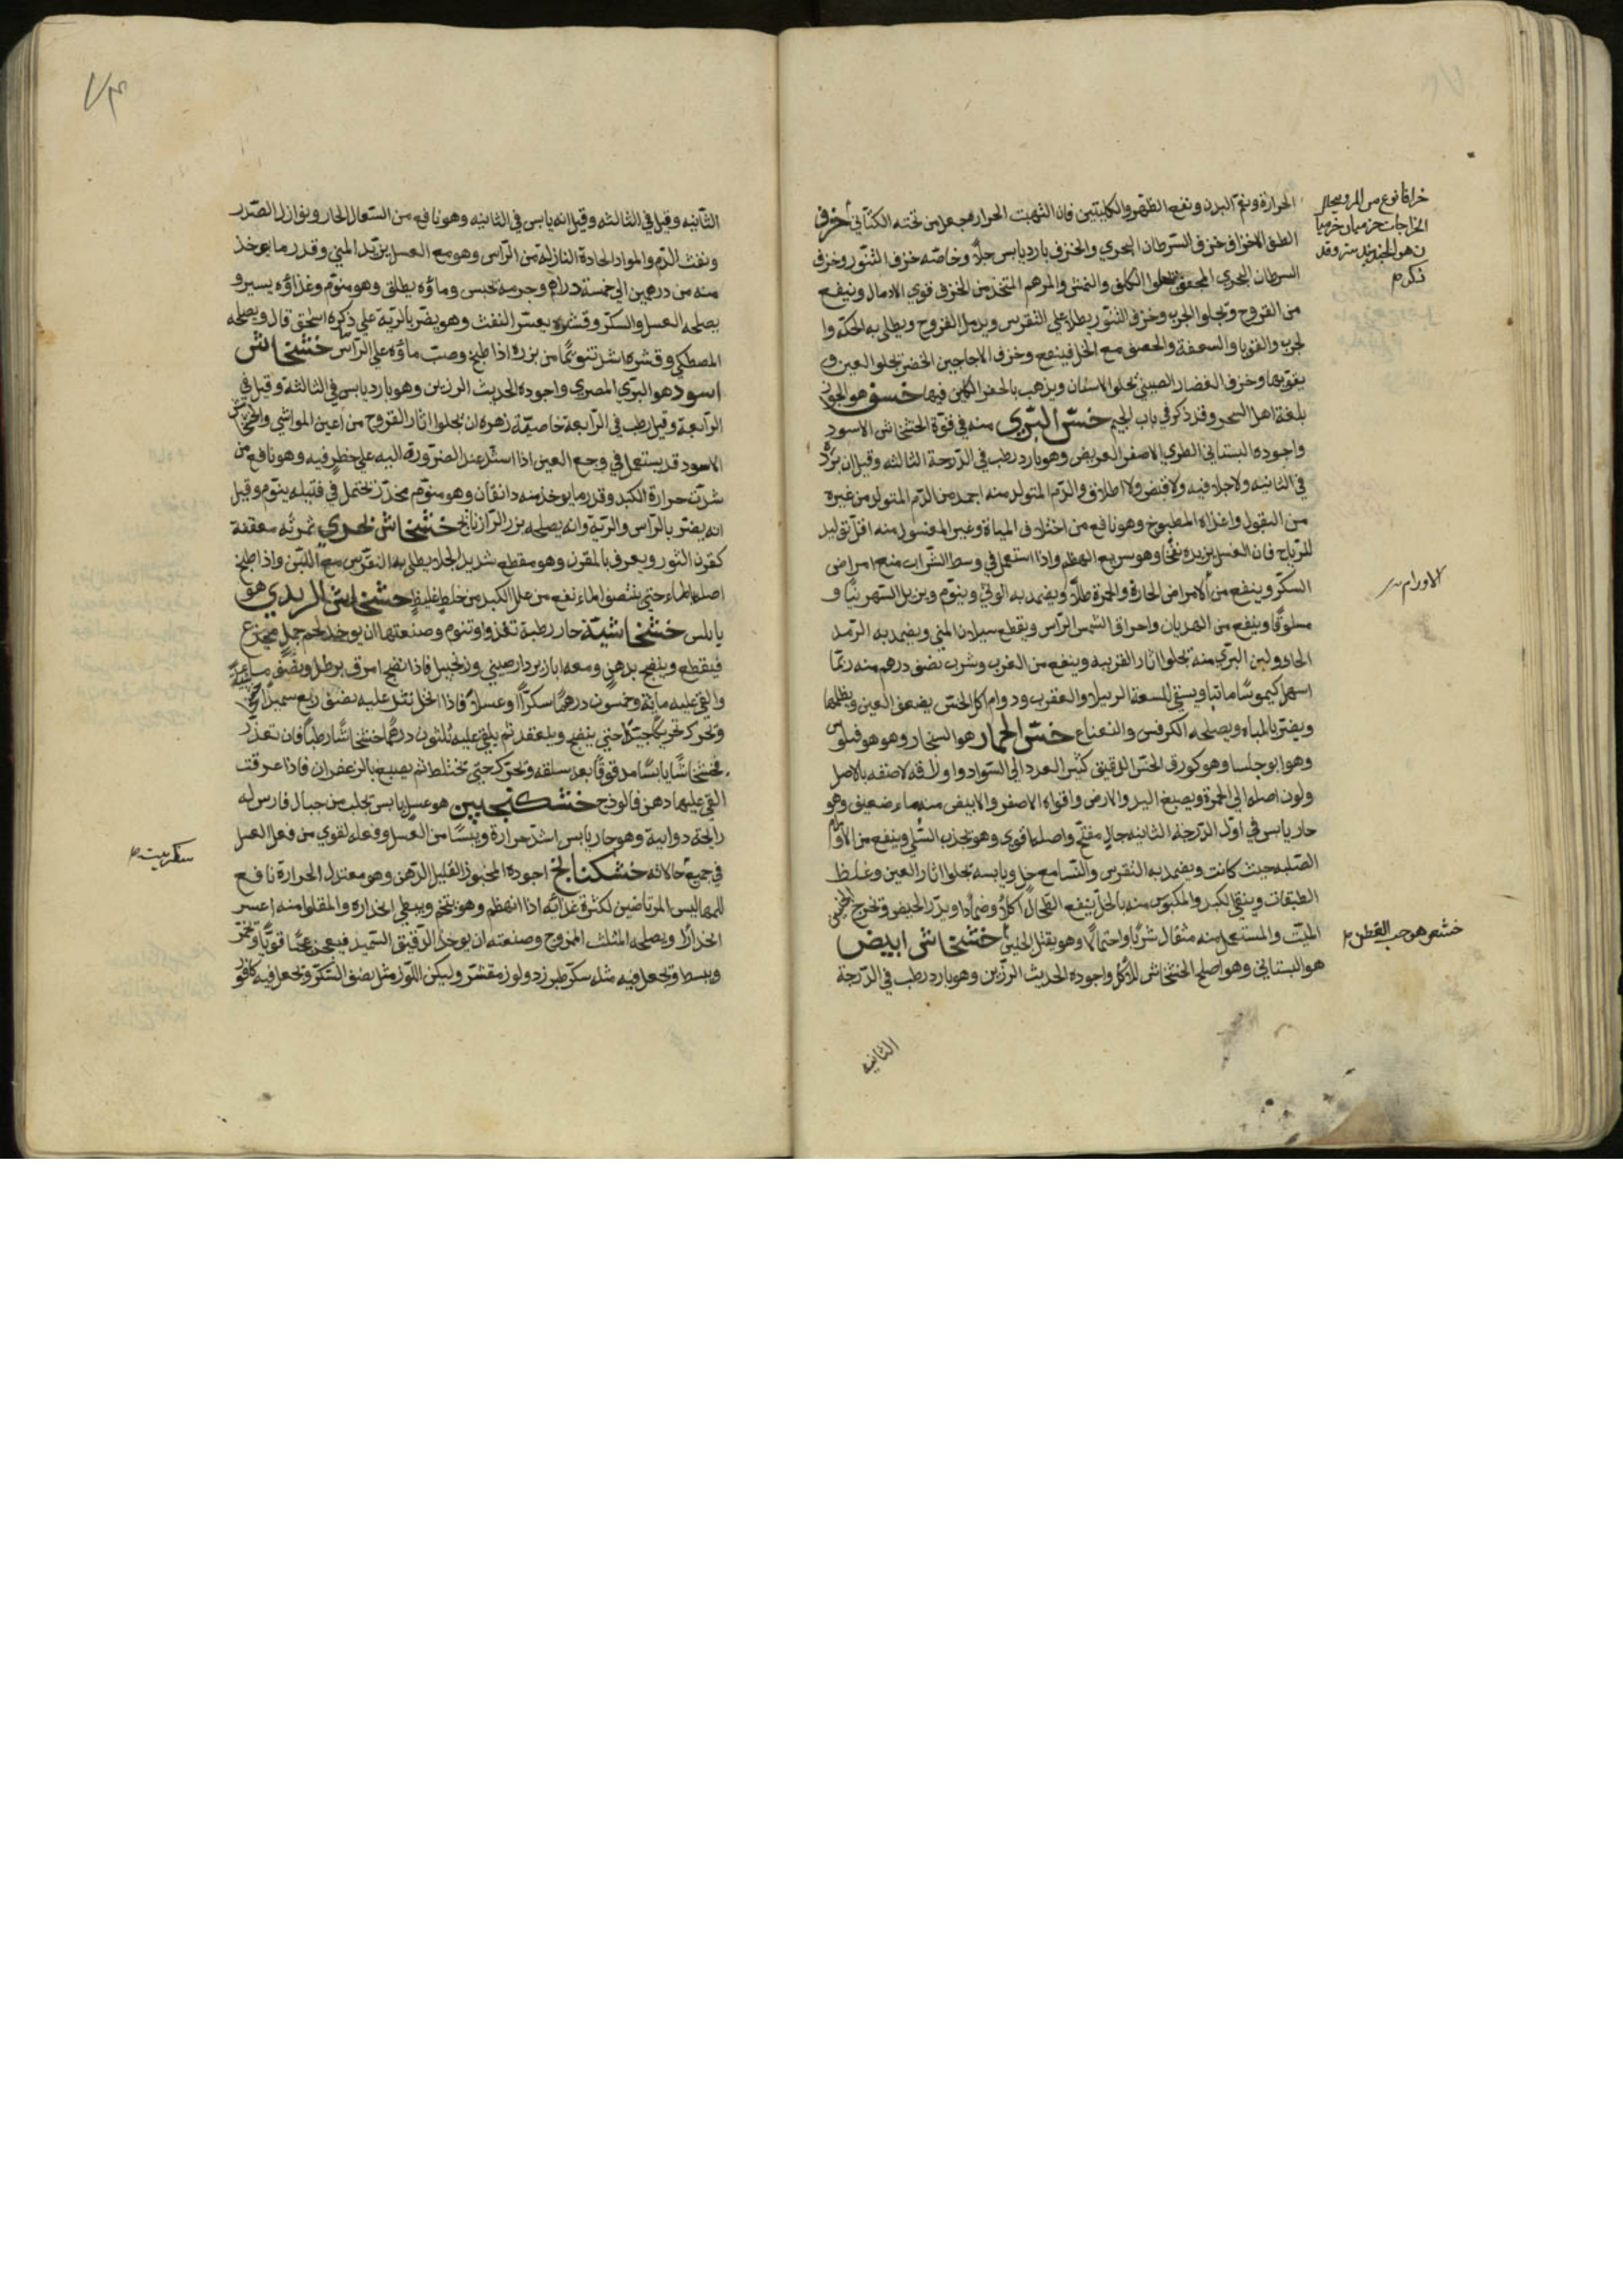 الحرارة ونعم البدن ونفع الظهر والكليتين فان التهبت الحرارة فيجعل من تحته الكتاني خزف
الطف الاخزاف خزف السرطان البحري والخزف بارد يابس جلاّ وخاصّه خزف التنّور وخزف
السرطان البحري المجفف يجلوا الكلف والنمش والمرهم المتخذ من الخزف قوي الادمال وينفع
من القروح وتجلوا الجرب وخزف التنّور يطلا على النقرس ويدمل القروح ويطلى به الحكة وا
لجرب والقوبا والسعفة والحصف مع الخل فينفع وخزف الاجاجين الخضر تجلوا العين و
يقويها وخزف الغضار الصيني تجلوا الاسنان ويذهب بالحفر الكاين فيها خسف هو الجوز
بلغة اهل الشحر وقد ذكر في باب الجيم خسّ البّري منه في قوّة الخشخاش الاسود
واجوده البستاني الطري الاصفر العريض وهو بارد رطب في الدّرجة الثالثه وقيل ان برده
في الثانيه ولا جلا فيه ولا قبض ولا اطلاق والدّم المتولد منه احمد من الدّم المتولد من غيره
من البقول واغذاه المطبوخ وهو نافع من اختلاف المياة وغير المغسول منه اقلّ توليد
للرّياح فان الغسل يزيده نفخًا وهو سريع الهظم واذا استعمل في وسط الشّراب منع امراض
السكّر وينفع من الامراض الحارة والحمرة طلاّ ويضمد به الوثي وينوّم ويزيل السّهر نيًّا و
مسلوقًا وينفع من الهديان واحراق الشمس الرّاس ويقطع سيلان المني ويضمد به الرّمد
الحاد ولبن البرّي منه تجلوا اثار القرنيه وينفع من الغرب وشرب نصف درهم منه ربمّا
اسهل كيموسًا مائيا ويسقى للسعة الرتيلا والعقرب ودوام اكل الخسّ يضعف العين ويظلمها
ويضر بالباه ويصلحه الكرفس والنعناع خسّ الحمار هو الشنجار وهو هو فيلوس
وهو ابو جلسا وهو كورق الخسّ الدقيق كثير العدد الى السّواد واوراقه لاصقه بالاصل
ولون اصله الى الحمرة ويصبغ اليد والارض واقواه الاصفر والابيض منه ماء ضعيف وهو
حار يابس في اوّل الدّرجة الثانيه جالٍ مفتّح واصله اقوى وهو يجذب السُّلي وينفع من الاورام
الصّلبه حيث كانت ويضمد به النّقرس والنّسا مع خلٍ ويابسه تجلوا اثار العين وغلظ
الطبقات وينقي الكبد والمكبوس منه بالخلّ ينفع الطّحال اكلاً وضمادًا ويدرّ الحيض وتخرج الجنين
الميّت والمستعمل منه مثقال شربًا واحتمالاً وهو يقتل الجنين خشخاش ابيض
هو البستاني وهو اصلح الخشخاش للاكل واجوده الحديث الرّزين وهو بارد رطب في الدّرجة
الثانيه
خزاما نوع من المرو يحلل
الخراجات خزميان خزميا
ن هو الجندبيدستر وقد
ذكر م
الاورام
خشعر هو حب القطن م
٧٣
الثانيه وقيل في الثالثه وقيل انه يابس في الثانيه وهو نافع من السّعال الحار ونوازل الصّدر
ونفث الدّم والمواد الحادة النازلة من الرّاس وهو مع العسل يزيد المني وقدر ما يوخذ
منه من درهمين الى خمسة دراهم وجرمه يحبس وماؤه يطلق وهو منوّم وغذاؤه يسير و
يصلحه العسل والسكّر وقشره يعسّر النفث وهو يضّر بالريّه على ذكره اسحق قال ويصلحه
المصطكى وقشره اشد تنويًما من بزره اذا طبخ وصبّ ماؤه على الرّاس خشخاش
اسود هو البّري المصري واجوده الحديث الرزين وهو بارد يابس في الثالثة وقيل في
الرّابعة وقيل رطب في الرّابعة خاصيّة زهره ان تجلوا اثار القروح من اعين المواشي والخشخاش
الاسود قد يستعمل في وجع العين اذا اشتد عند الضرّورة اليه على خطرٍ فيه وهو نافع من
شدّت حرارة الكبد وقدر ما يوخذ منه دانقان وهو منوّم مخدّر يحتمل في فتيله ينوّم وقيل
انه يضّر بالرّاس والريّة وانه يصلحه بزر الرّازيانج خشخاش بحري ثمرته معقفة
كقرن الثور ويعرف بالمقرن وهو مقطع شديد الجلا يطلى به النقرس مع اللّبن واذا طبخ
اصله بالماء حتى ينتصف الماء نفع من علل الكبد من خلط غليظ خشخاش الزبدي هو
يابلس خشخاشيّة حار رطبة تغذوا وتنوم وصنعتها ان يوخذ لحم جمل مجزع
فيقطع وينضج بدهن ومعه ابازير دارصيني وزنجبيل فاذا نضج امرق برطل ونصف ماء
والقي عليه ماية وخمسون درهمًا سكرًا او عسلاً فاذا انحل نثر عليه نصف ربع سميدًا
وتحرك تحريكًا جيّدًا حتى ينضج وينعقد ثم يلقى عليه ثلثون درهمًا خشخاشًا رطبًا فان تعذّر
فخشخاشًا يابسًا مدقوقًا بعد سلقه وتحرّك حتى تختلط ثم يصبغ بالزعفران فاذا عرقت
القي عليها دهن فالوذج خشكنجبين هو عسل يابس تجلب من جبال فارس له
رايحة دوايية وهو حار يابس اشدّ حرارة ويبسًا من العسل وفعله اقوي من فعل العسل
في جميع حالاته خشكنانج اجوده المخبوز القليل الدّهن وهو معتدل الحرارة نافع
المرتاضين لكثرة غذايّه اذا انهظم وهو يتخم ويبطي انحداره والمقلوا منه اعسر
انحدارًا ويصلحه المثلث الممزوج وصنعته ان يوخذ الدّقيق السّميد فيعجن عجنًا قويًّا وتخمّر
ويبسط وتجعل فيه مثله سكّر طبرزد ولوز مقشّر وليكن اللّوز مثل نصف السّكّر وتجعل فيه كافور
سكربيت م